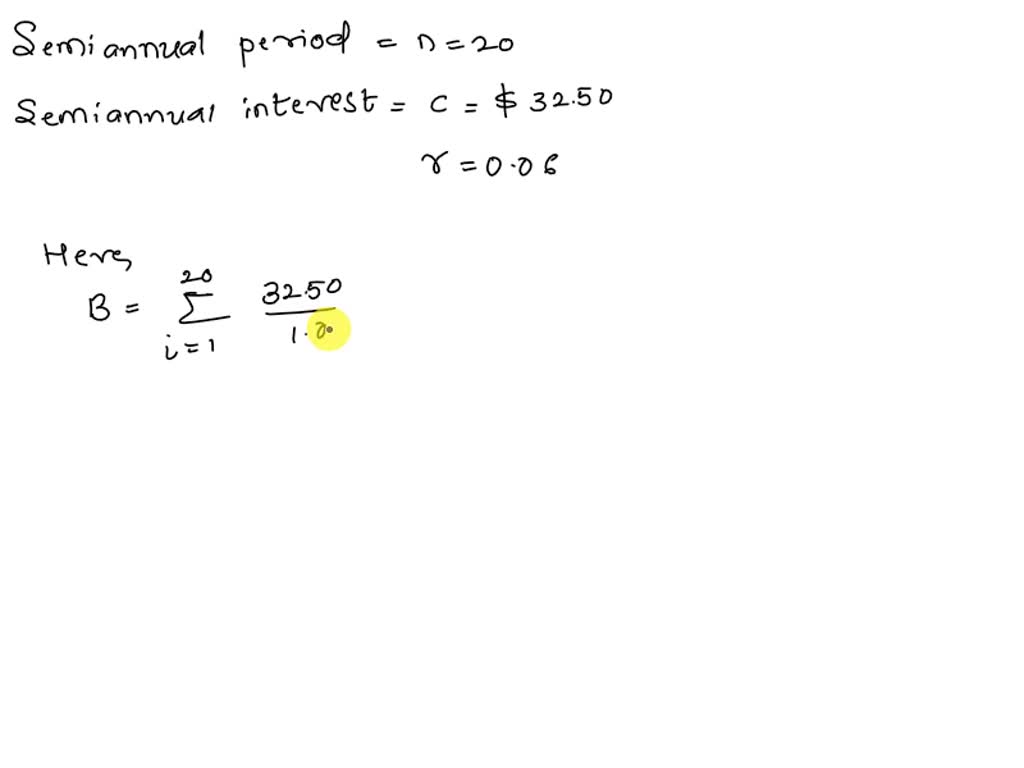 Semiannual period = n = 20
Semiannual interest = C = $ 32.50
r = 0.06
Here,
B = 20 Σ i = 1 32.50